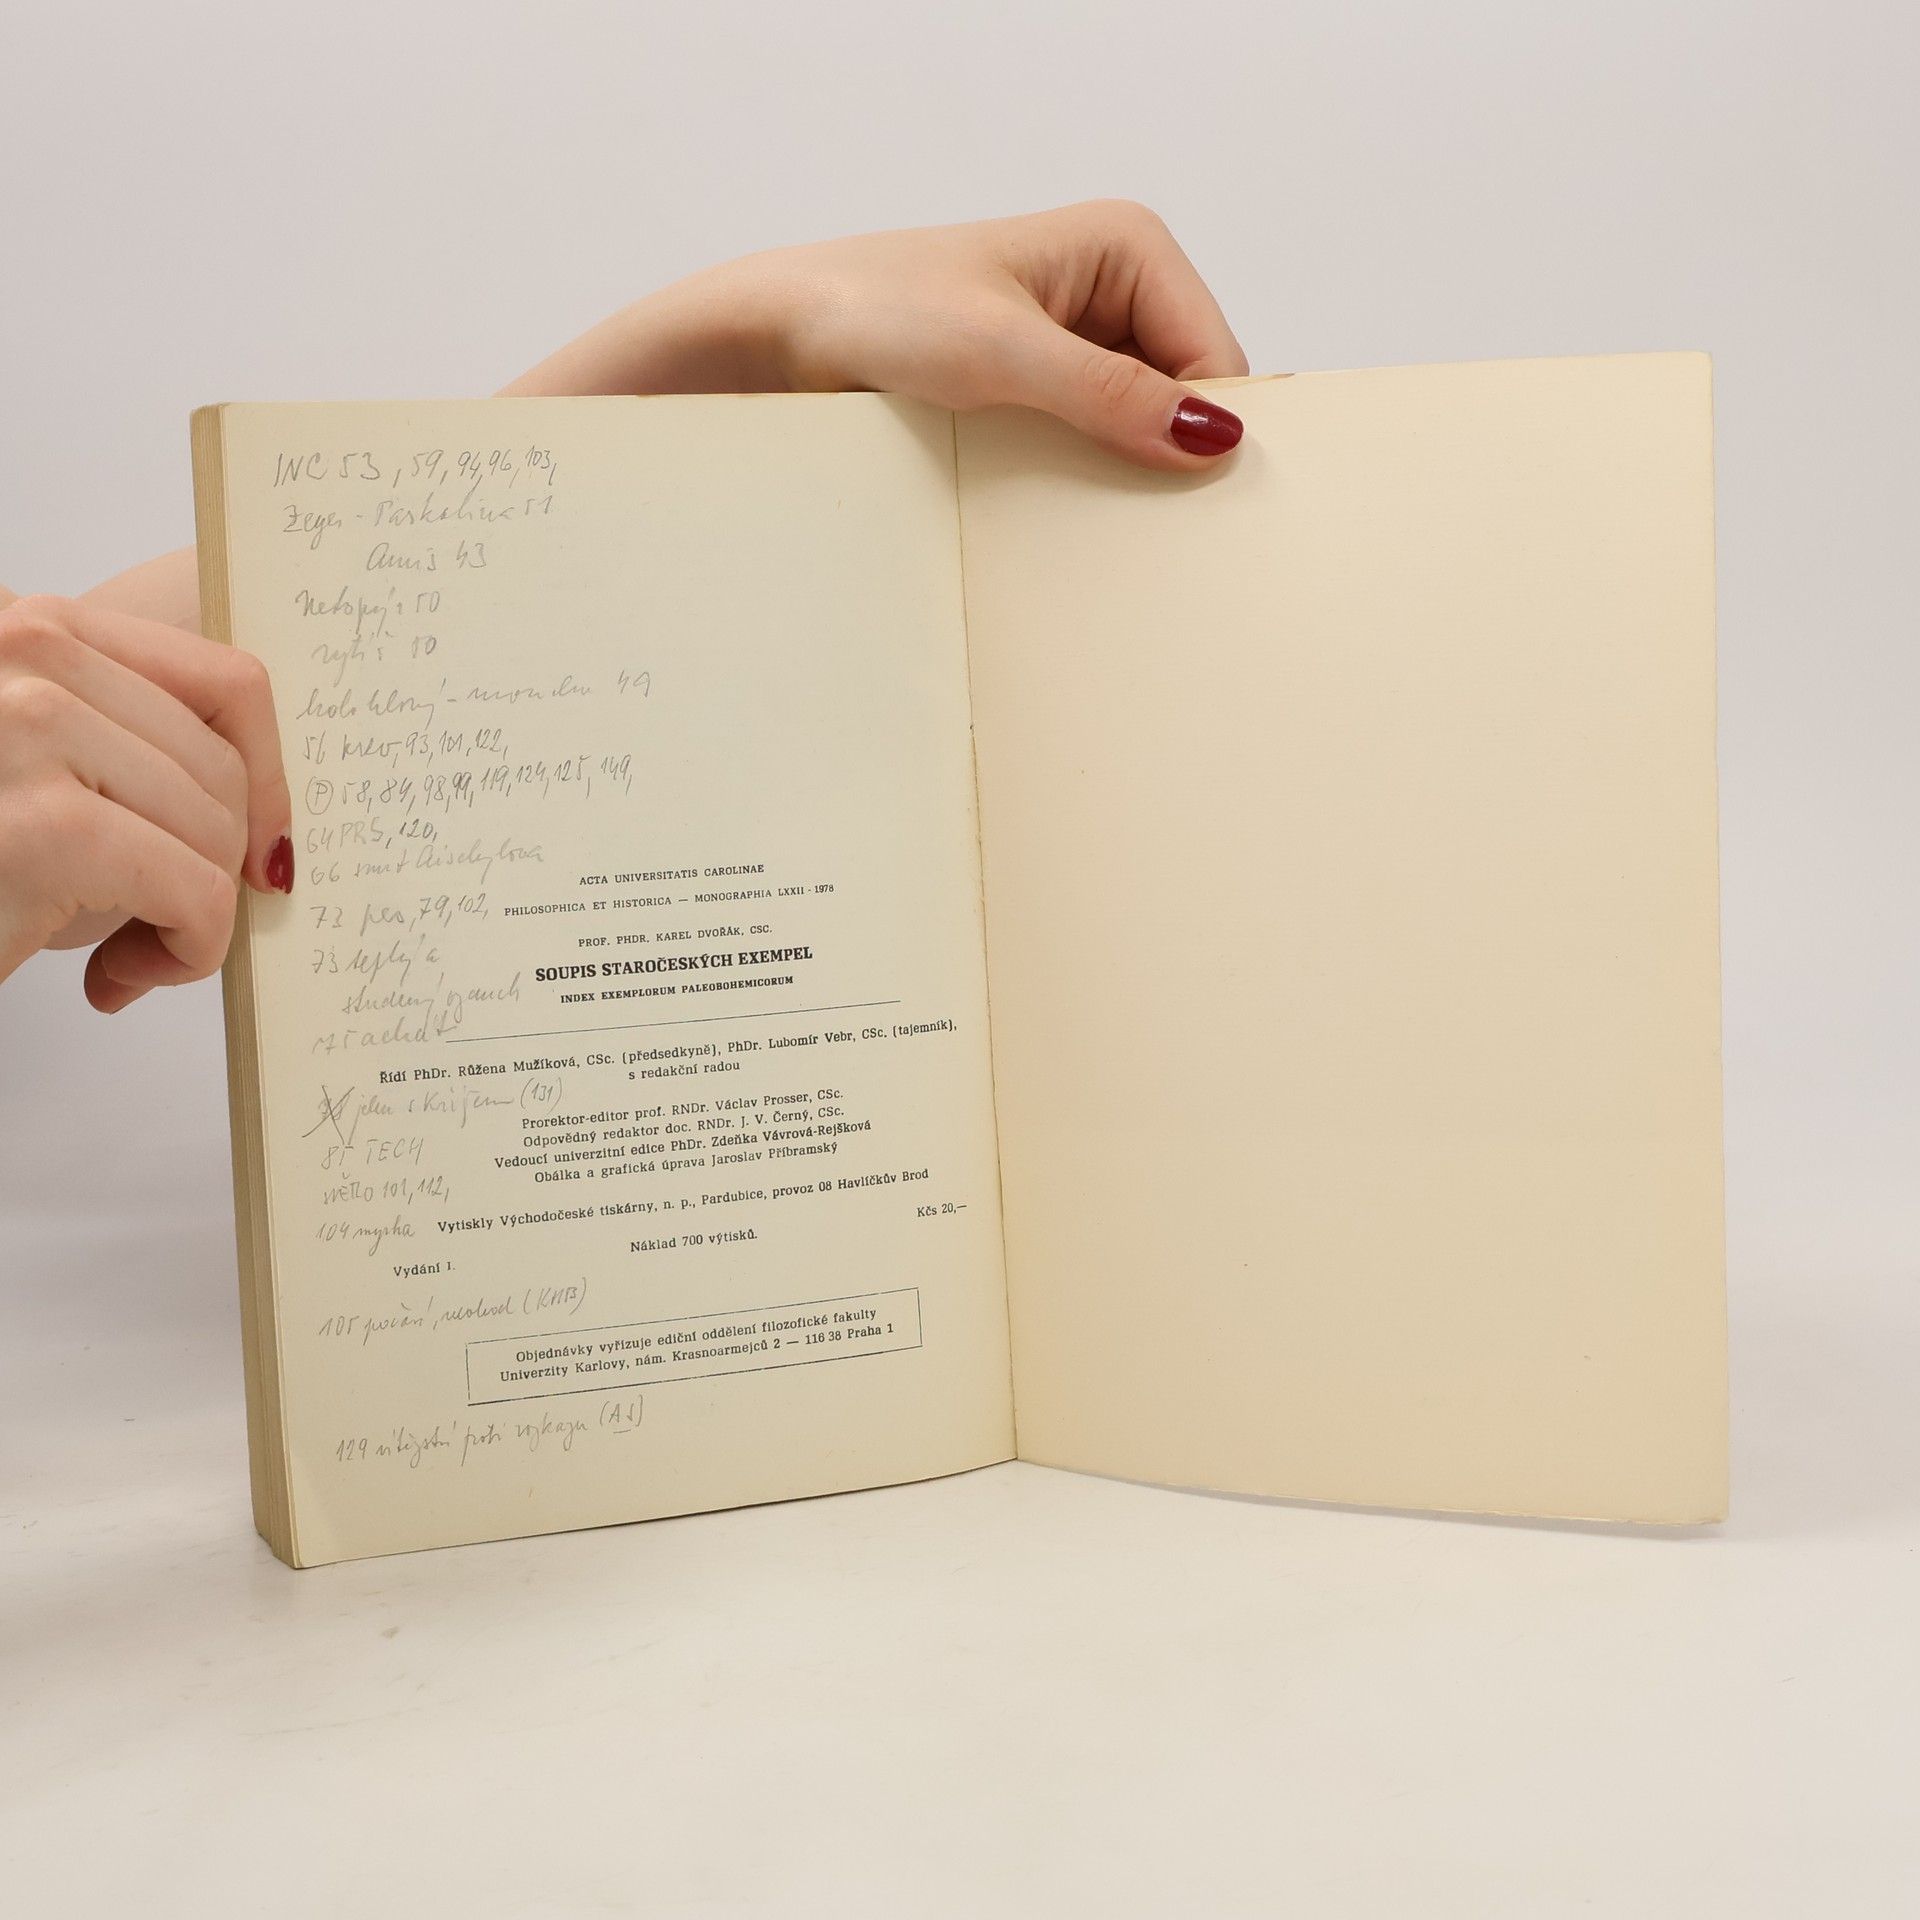 INC 53, 59, 94, 96, 103,
Zeyer - 51
Amis 43
Netopýr 50
rytíř 50
49
56 krev, 93, 101, 122,
P 58, 84, 98, 99, 119, 124, 125, 149,
64 PRS, 120,
66 smrt Aischylova
ACTA UNIVERSITATIS CAROLINAE
PHILOSOPHICA ET HISTORICA — MONOGRAPHIA LXXII - 1978
73 pes, 79, 102,
PROF. PHDR. KAREL DVOŘÁK, CSC.
73 teplý a
SOUPIS STAROČESKÝCH EXEMPEL
studený
INDEX EXEMPLORUM PALEOBOHEMICORUM
75 achát
Řídí PhDr. Růžena Mužíková, CSc. (předsedkyně), PhDr. Lubomír Vebr, CSc. (tajemník),
s redakční radou
jelen s křížem (131)
Prorektor-editor prof. RNDr. Václav Prosser, CSc.
Odpovědný redaktor doc. RNDr. J. V. Černý, CSc.
Vedoucí univerzitní edice PhDr. Zdeňka Vávrová-Rejšková
Obálka a grafická úprava Jaroslav Příbramský
85 TECH
101, 112,
104 myrha
Vytiskly Východočeské tiskárny, n. p., Pardubice, provoz 08 Havlíčkův Brod
Kčs 20,—
Náklad 700 výtisků.
Vydání I.
105
Objednávky vyřizuje ediční oddělení filozofické fakulty
Univerzity Karlovy, nám. Krasnoarmejců 2 — 116 38 Praha 1
129 vítězství proti rozkazu (AS)